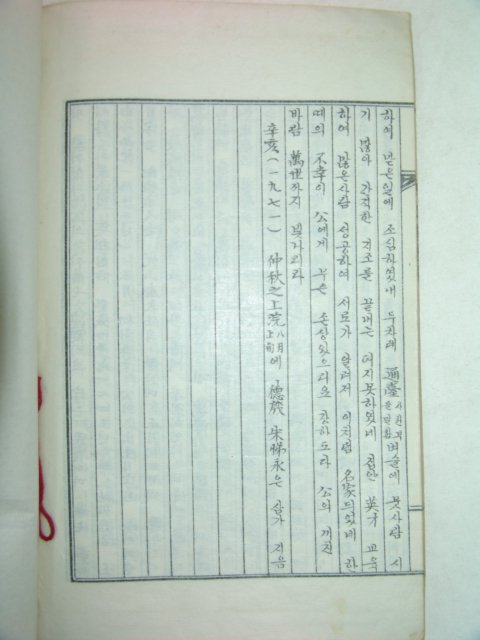 하여 맡은일에 조심하였네 두차례 通臺사헌부을말함벼슬에 못사람 시
기 많아 간직한 격조를 끝내는 펴지못하였네 집안 英才 교육
하여 많은사람 성공하여 서로가 알려져 이처럼 名家되었네 한
때의 不幸이 公에게 무슨 손상있으리오 강하도다 公의 끼친
바람 萬世까지 빛나리라
辛亥(一九七一) 仲秋之上浣八月上旬에 德殷 宋 永은 삼가 지음